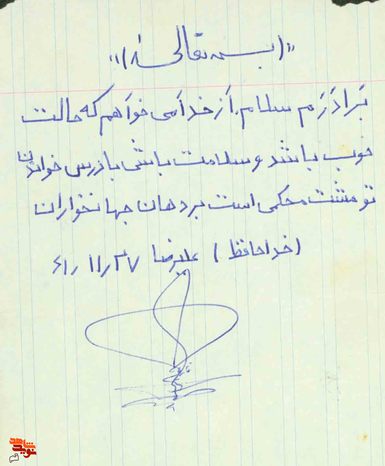 «(بسمه تعالی)»
برادرم سلام. از خدا می خواهم که حالت
خوب باشد و سلامت باشی با درس خواندن
تو مشت محکمی است بر دهان جهانخواران
(خداحافظ) علیرضا ۶۱٫۱۱٫۲۷
نوید شاهد